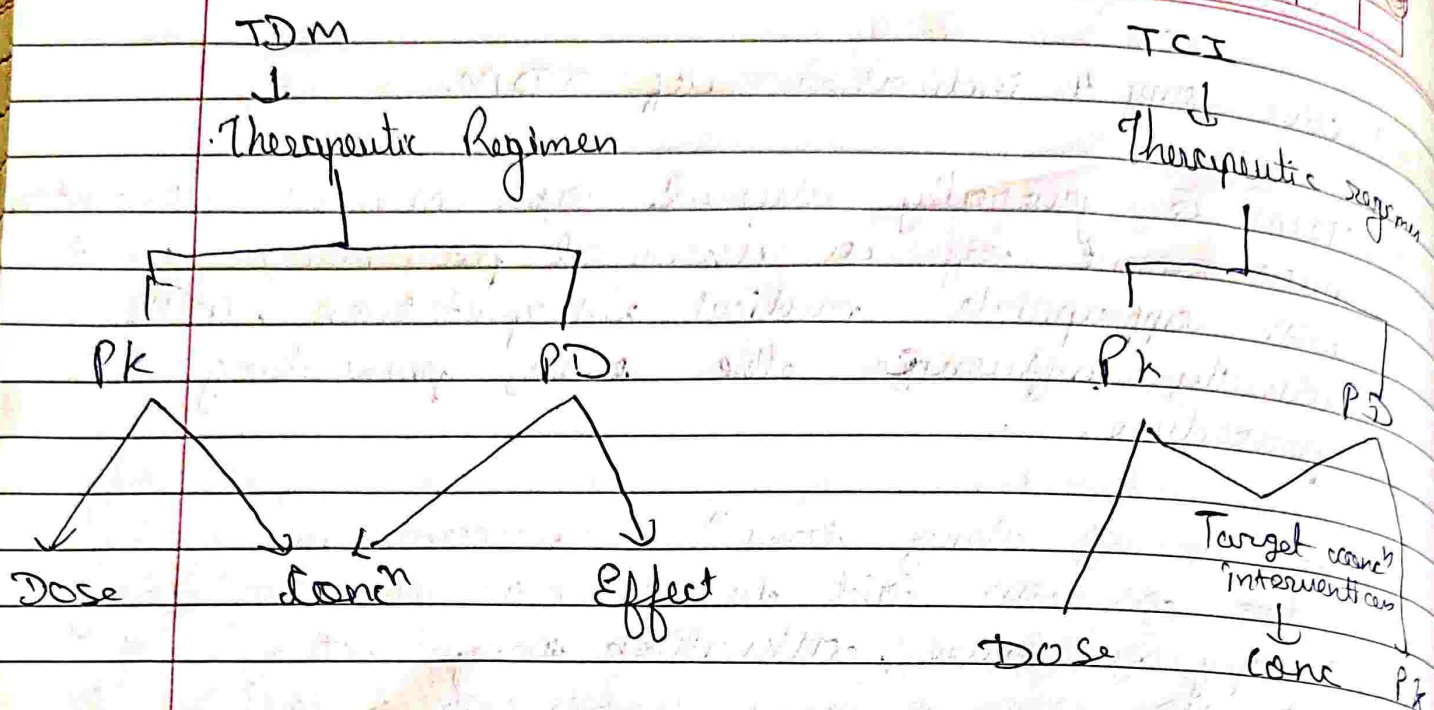 TDM
↓
Therapeutic Regimen
PK PD
Dose Concⁿ Effect
TCI
↓
Therapeutic regimen
PK PD
Target concⁿ
intervention
↓
Dose Conc